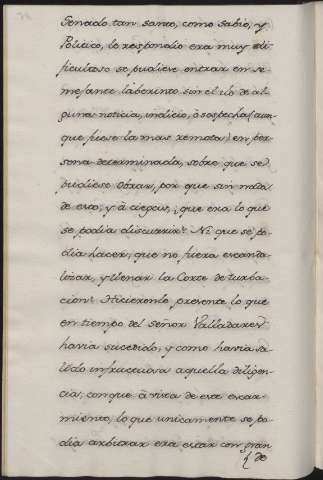 Senado tan santo, como sabio, y
Politico, le respondio era muy di
ficultoso se pudiese entrar en se
mejante laberinto sin el ilo de al
guna noticia, indicio, ò sospecha (aun
que fuese la mas remota) en per
sona determinada, sobre que se
pudiese obrar, por que sin nada
de esto, y à ciegas, ¿que era lo que
se podia discurrir? Ni que se po
dia hacer, que no fuera escanda
lizar, y llenar la Corte de turba
cion? Hicieronle presente lo que
en tiempo del Señor Valladares
havia sucedido, y como havia sa
lido infructuosa aquella diligen
cia; conque à vista de este escar
miento, lo que unicamente se po
dia arbitrar era estar con gran
de